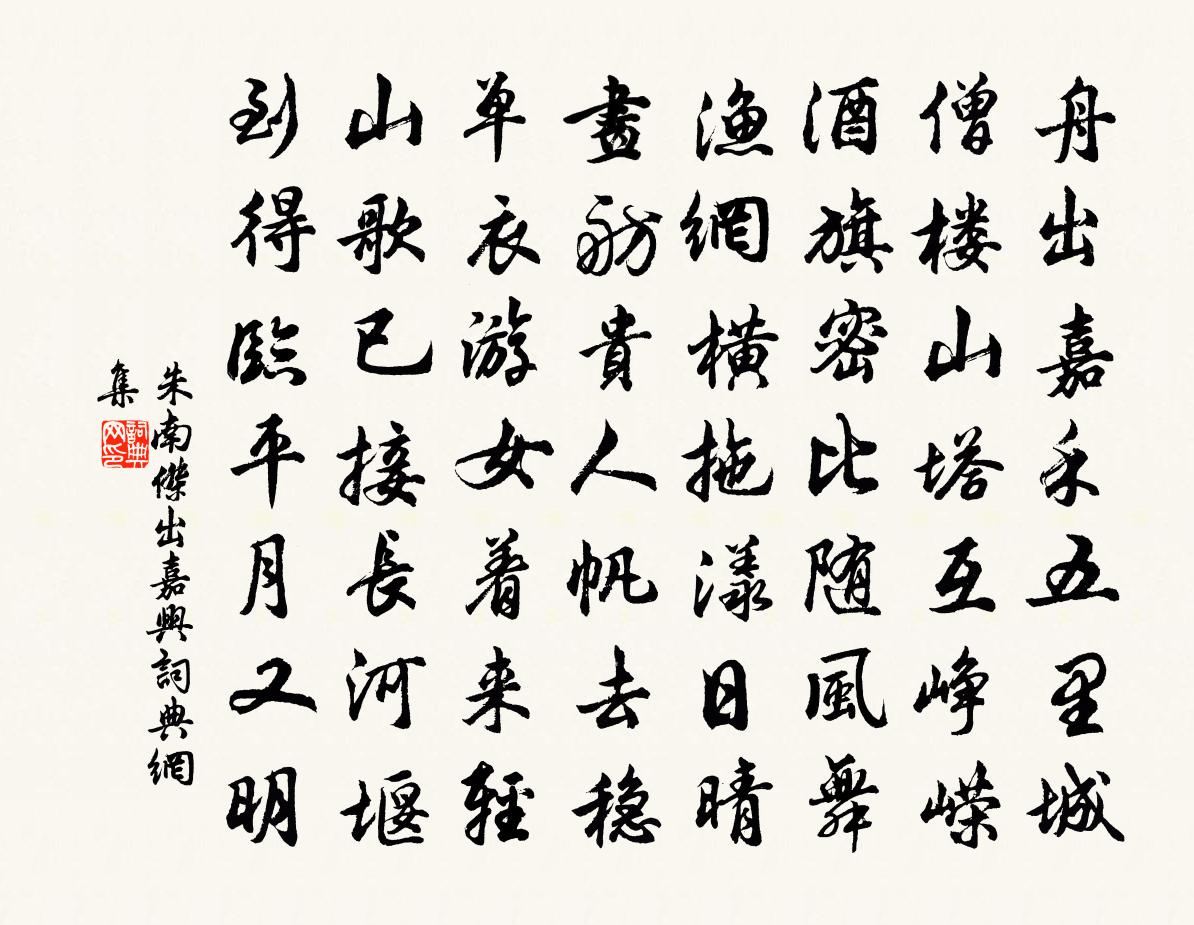 舟出嘉禾五里城
僧楼山塔互峥嵘
酒旗密比随風舞
漁網橫拖漾日晴
畫舫貴人帆去穏
单衣游女着来輕
山歌已接長河堰
到得臨平月又明
朱南傑出嘉興詞典網
集
詞典网印